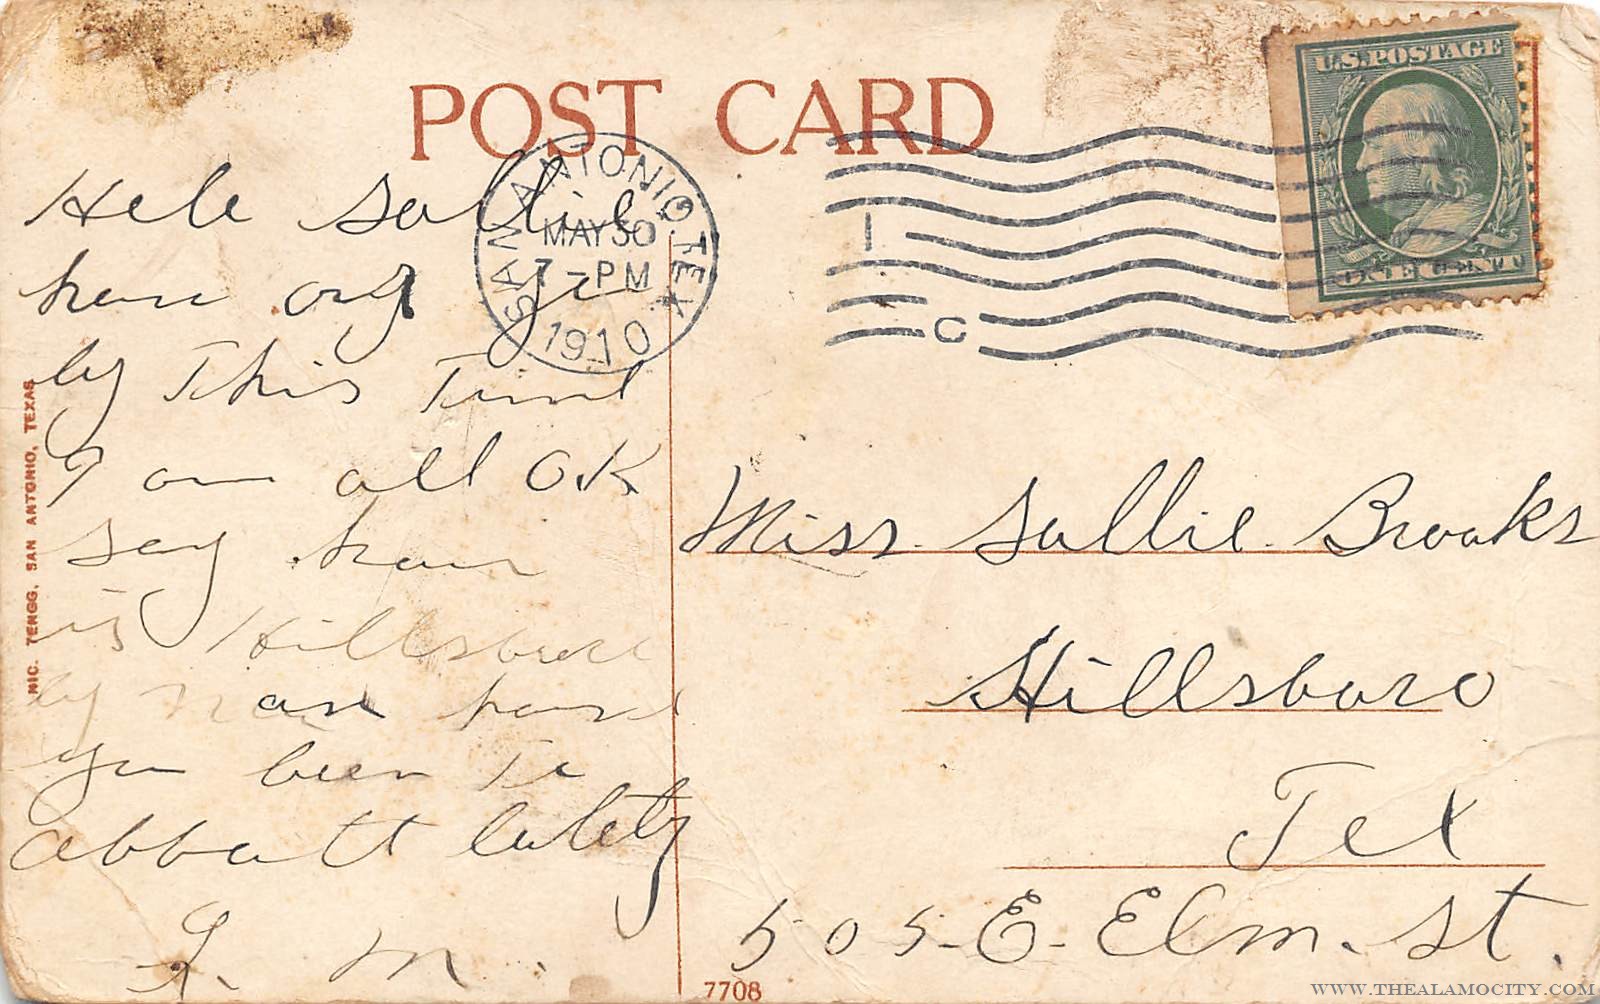 POST CARD
U.S. POSTAGE
ONE CENT
SAN ANTONIO, TEX.
MAY 30
7 - PM
1910
I
C
Helo Sallie
how are
by this Time
I am all OK
say how
is Hillsboro
by now have
you been To
abbott lately
M.
Miss Sallie Brooks
Hillsboro
Tex
505-E-Elm. St.
NIC. TENGG. SAN ANTONIO, TEXAS
7708
WWW.THEALAMOCITY.COM